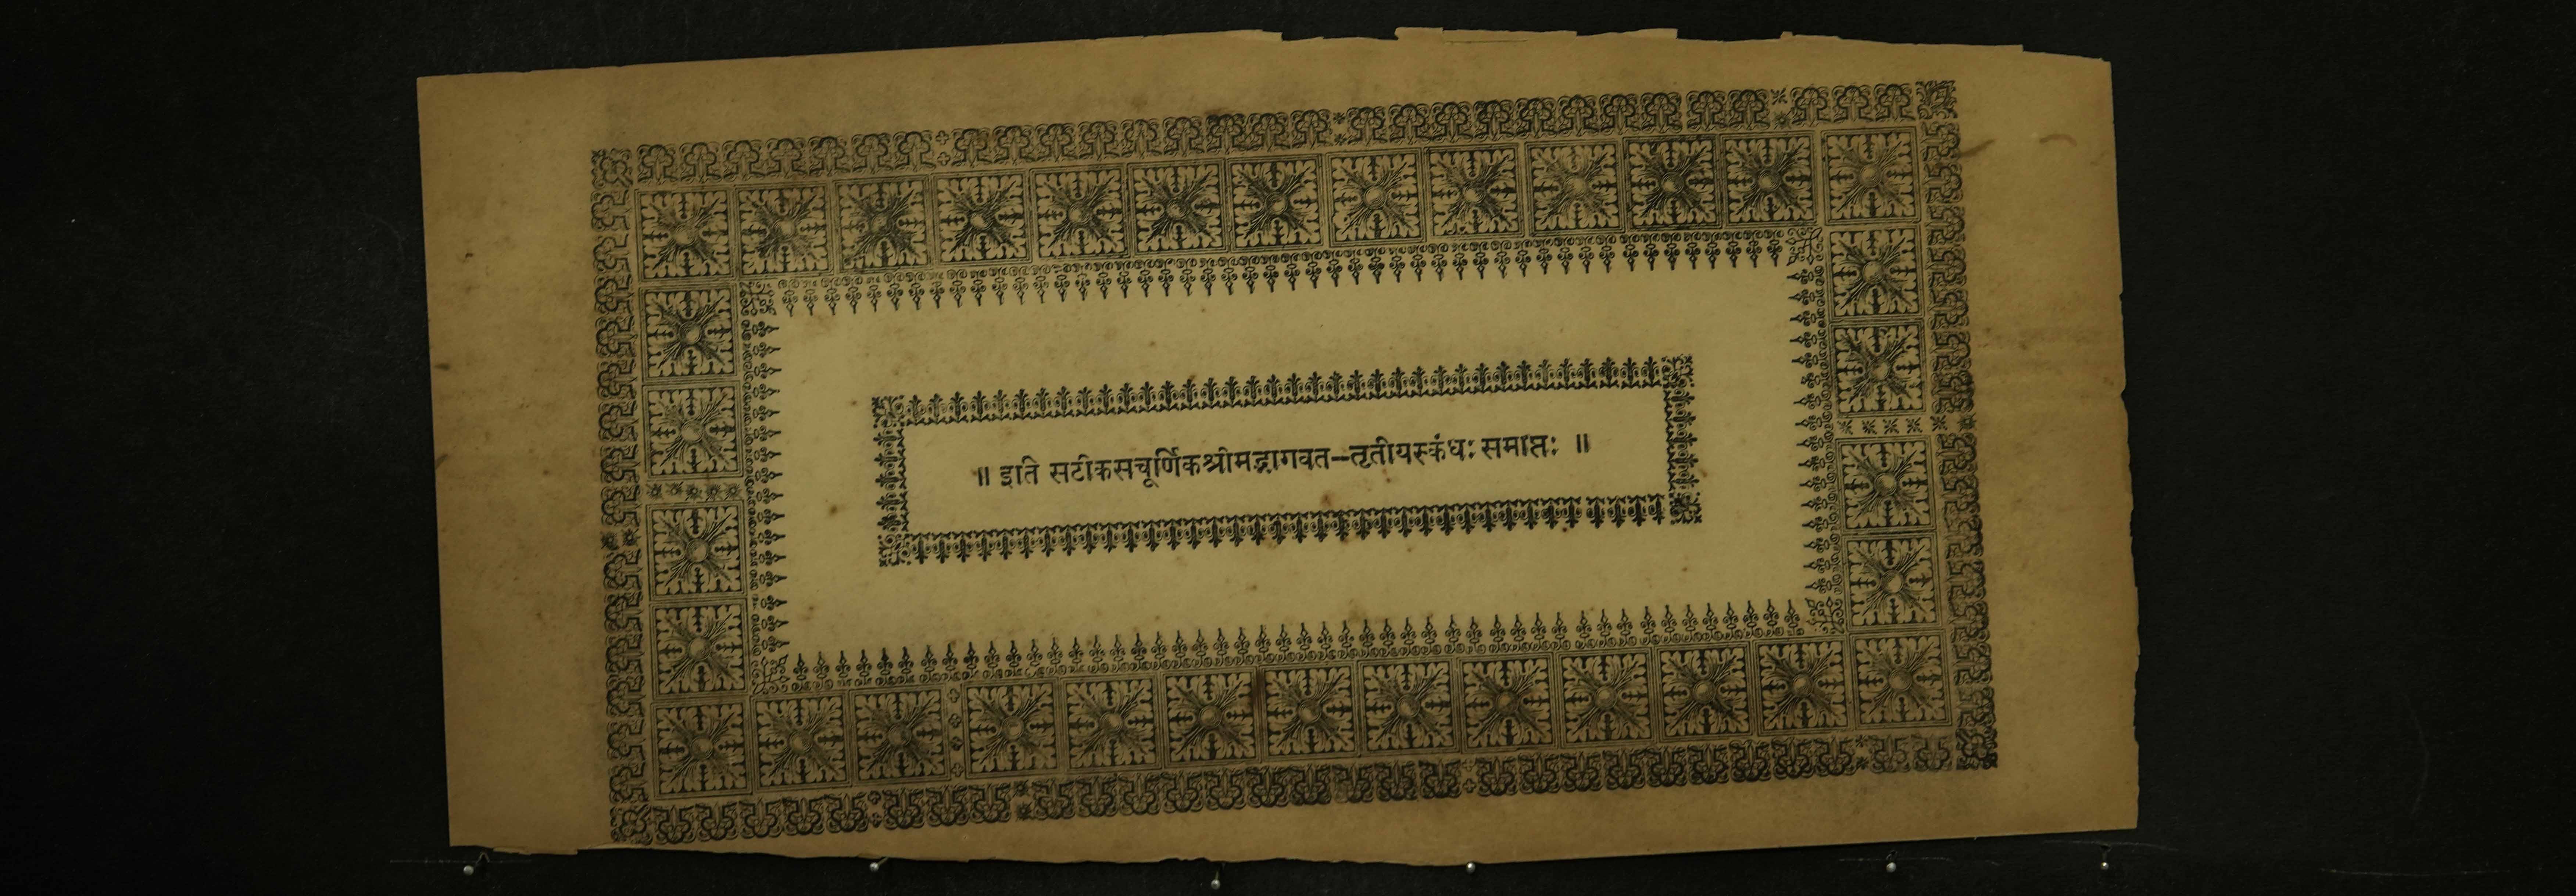 ॥ इति सटीकसचूर्णिकश्रीमद्भागवत–तृतीयस्कंधः समाप्तः ॥